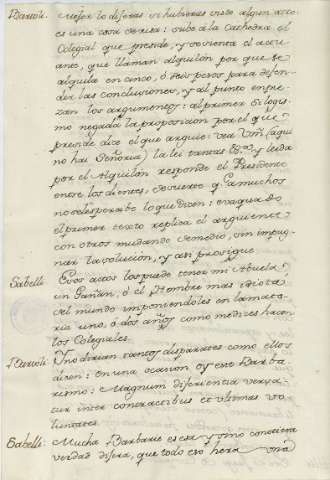 Bartoli: Mejor lo dijeras si hubieras visto algun acto:
es una cosa certera: sube à la Cathedra el
Colegial que preside, y se sienta el actu-
ante, que llaman alquilon por que se
alquila en cinco, ò seis pesos para defen-
der las conclusiones, y al punto empie-
zan los argumentos: al primer Silogis-
mo negada la proposicion por el que
preside dice el que arguie: vea Vm̃ (aqui
no hai Señoria) la lei tantas &ª y leida
por el Alquilon responde el Presidente
entre los dientes, de suerte q̃ a muchos
no se les percibe lo que dicen: evaquado
el primer texto replica el arguiente
con otros mudando de medio, sin impug-
nar la solucion, y asi prosigue.
Sabelli: Esos actos los puede tener mi Abuela,
un Gañan, ò el Hombre mas idiota
del mundo imponiendoles en la mate-
ria uno, ò dos años como medios hacen
los Colegiales.
Bartoli: No dirian tantos disparates como ellos
dicen: en una ocasion oy este Barba-
rismo: Magnum diferencia versa-
tur inter contractibus et ultimas vo-
luntates.
Sabelli: Mucha Barbarie es esa y como conociera
verdad dijera, que todo eso hera una